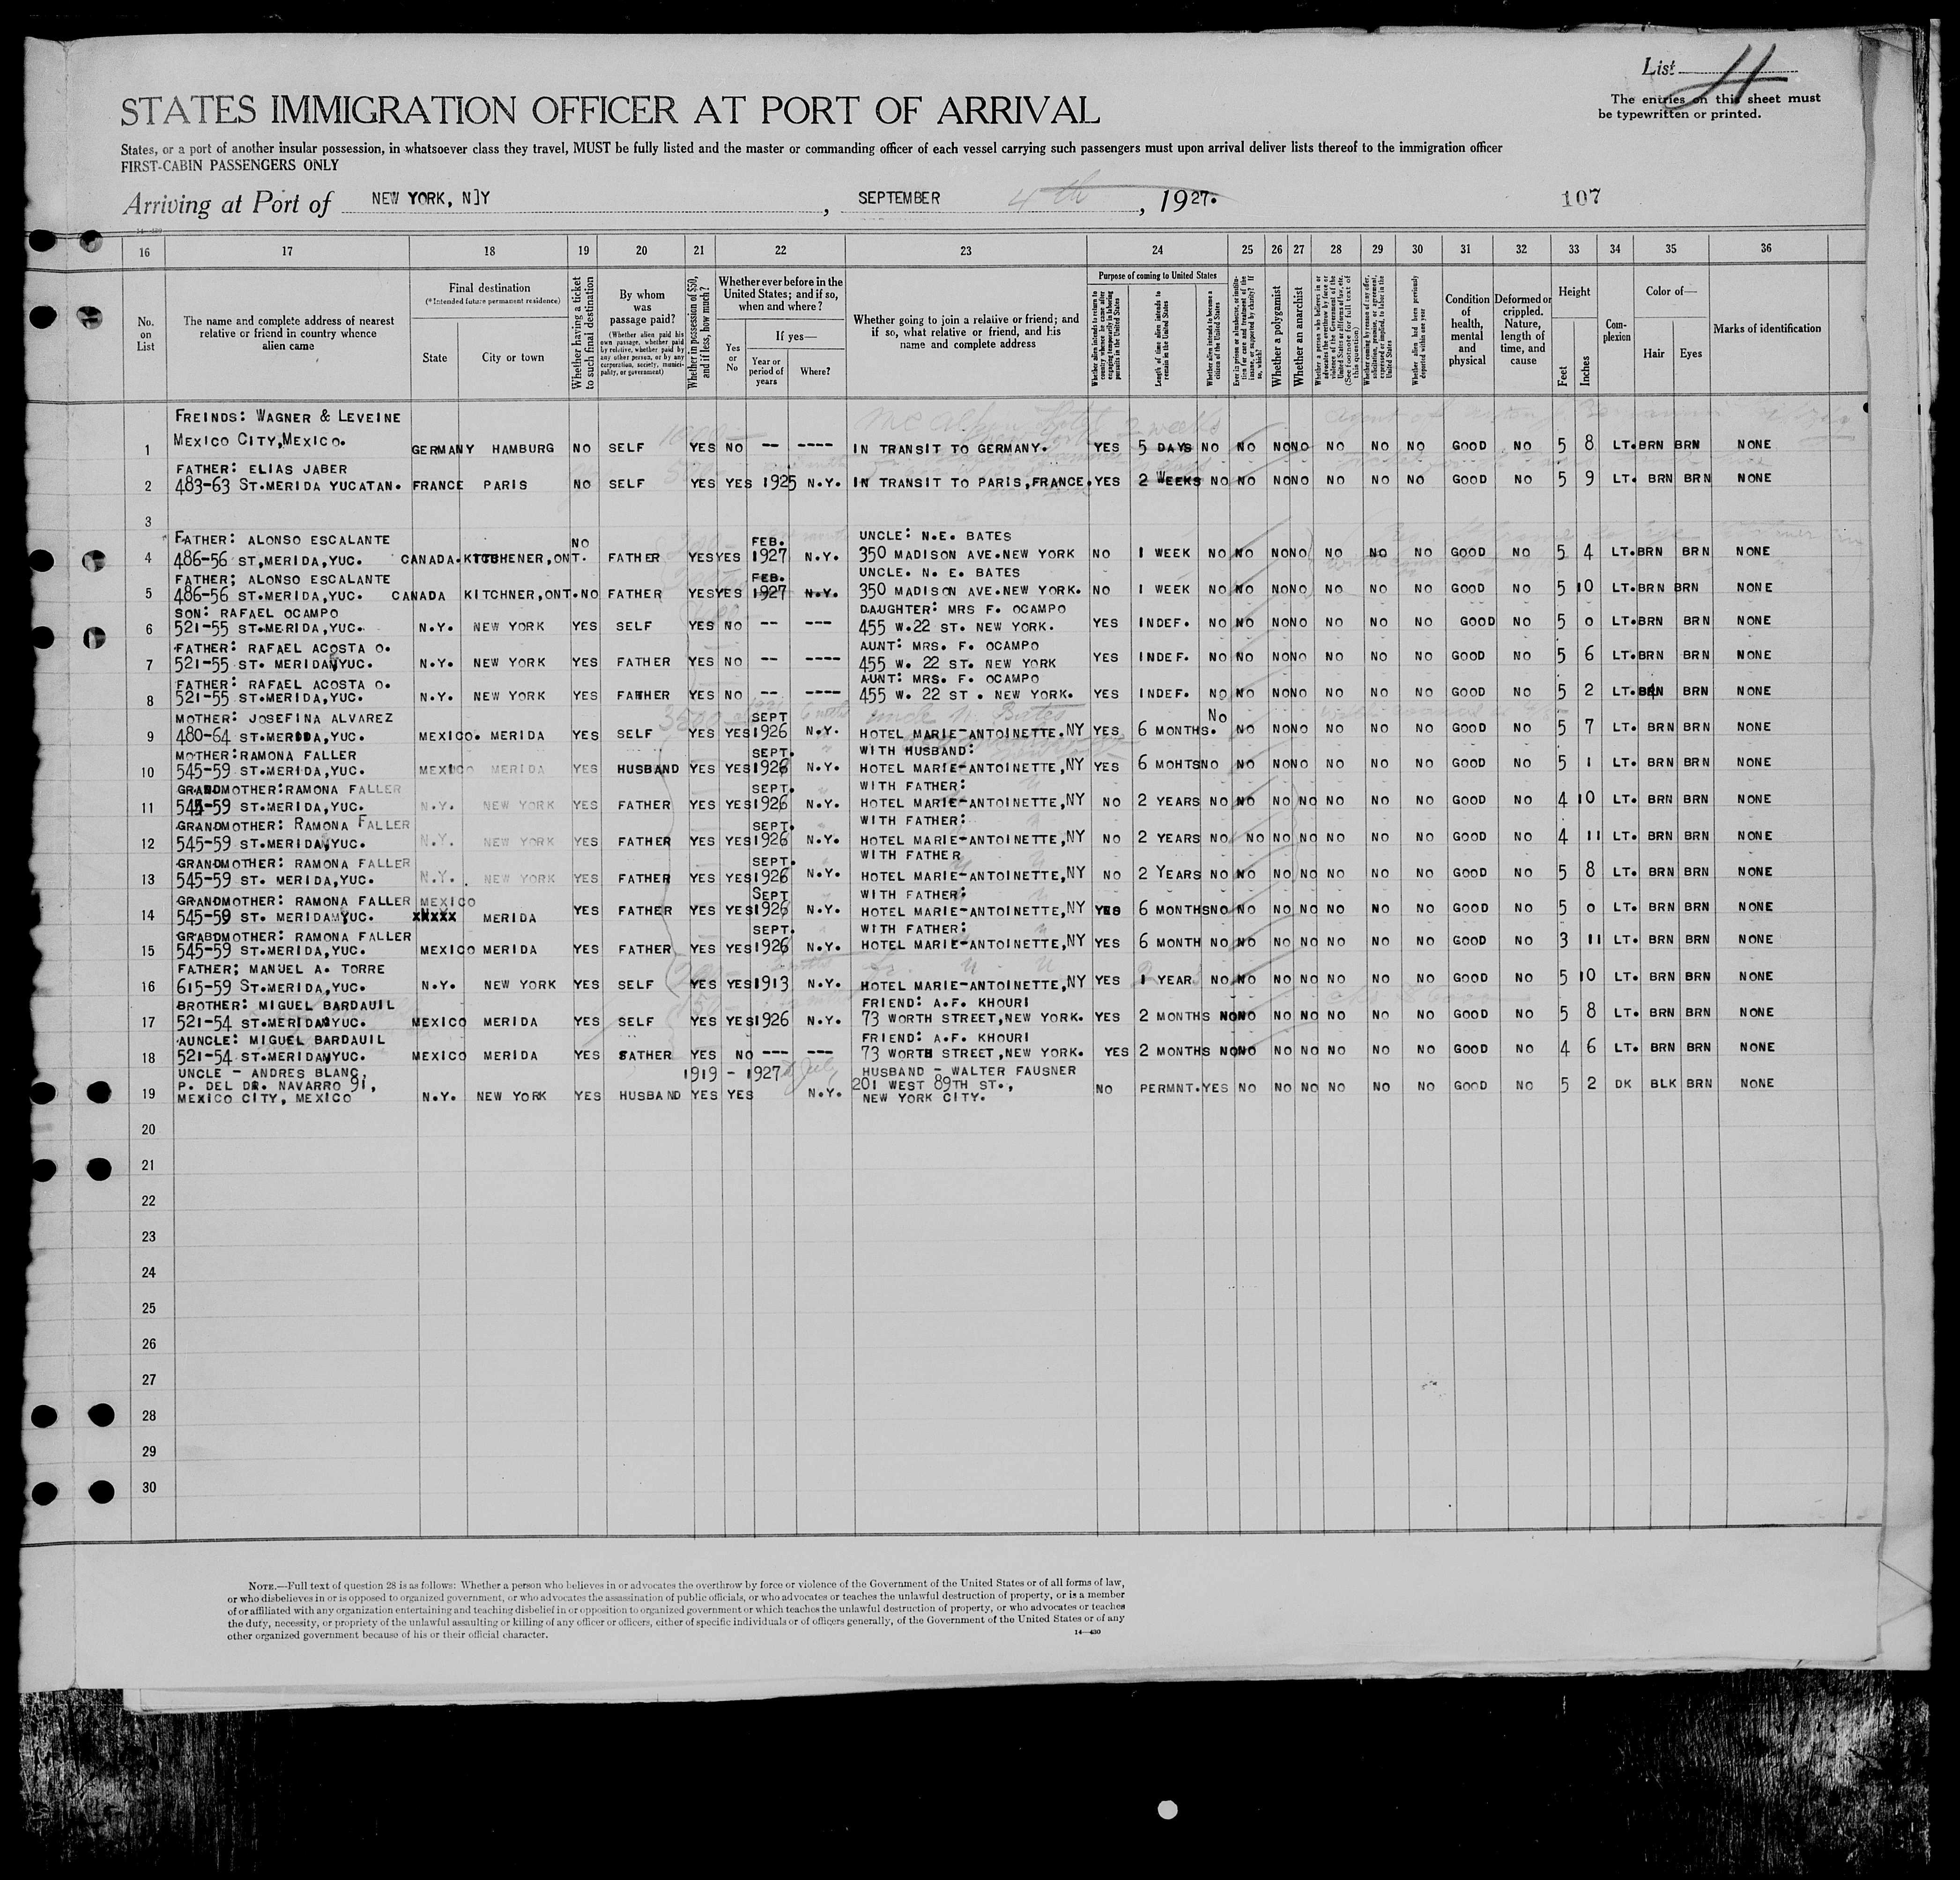 List 4
The entries on this sheet must
be typewritten or printed.
STATES IMMIGRATION OFFICER AT PORT OF ARRIVAL
States, or a port of another insular possession, in whatsoever class they travel, MUST be fully listed and the master or commanding officer of each vessel carrying such passengers must upon arrival deliver lists thereof to the immigration officer
FIRST-CABIN PASSENGERS ONLY
Arriving at Port of NEW YORK, N]Y, SEPTEMBER 4th, 1927. 107
14—430
16 17 18 19 20 21 22 23 24 25 26 27 28 29 30 31 32 33 34 35 36
No. on List
The name and complete address of nearest relative or friend in country whence alien came
Final destination
(*Intended future permanent residence)
State
City or town
Whether having a ticket to such final destination
By whom was passage paid?
(Whether alien paid his own passage, whether paid by relative, whether paid by any other person, or by any corporation, society, municipality, or government)
Whether in possession of $50, and if less, how much?
Whether ever before in the United States; and if so, when and where?
Yes or No
If yes—
Year or period of years
Where?
Whether going to join a relative or friend; and if so, what relative or friend, and his name and complete address
Purpose of coming to United States
Whether alien intends to return to country whence he came after engaging temporarily in laboring pursuits in the United States
Length of time alien intends to remain in the United States
Whether alien intends to become a citizen of the United States
Ever in prison or almshouse, or institution for care and treatment of the insane, or supported by charity? If so, which?
Whether a polygamist
Whether an anarchist
Whether a person who believes in or advocates the overthrow by force or violence of the Government of the United States or all forms of law, etc. (See footnote for full text of this question)
Whether coming by reason of any offer, solicitation, promise, or agreement, expressed or implied, to labor in the United States
Whether alien had been previously deported within one year
Condition of health, mental and physical
Deformed or crippled. Nature, length of time, and cause
Height
Feet
Inches
Complexion
Color of—
Hair
Eyes
Marks of identification
FREINDS: WAGNER & LEVEINE
MEXICO CITY, MEXICO.
1 GERMANY HAMBURG NO SELF YES NO -- ---- IN TRANSIT TO GERMANY. YES 5 DAYS NO NO NO NO NO NO NO GOOD NO 5 8 LT. BRN BRN NONE
FATHER: ELIAS JABER
2 483-63 ST.MERIDA YUCATAN. FRANCE PARIS NO SELF YES YES 1925 N.Y. IN TRANSIT TO PARIS, FRANCE. YES 2 WEEKS NO NO NO NO NO NO NO GOOD NO 5 9 LT. BRN BRN NONE
3
FATHER: ALONSO ESCALANTE NO FEB. UNCLE: N.E. BATES
4 486-56 ST, MERIDA, YUC. CANADA. KITCHENER, ONT. FATHER YES YES 1927 N.Y. 350 MADISON AVE. NEW YORK NO 1 WEEK NO NO NO NO NO NO NO GOOD NO 5 4 LT. BRN BRN NONE
FATHER; ALONSO ESCALANTE FEB. UNCLE. N. E. BATES
5 486-56 ST.MERIDA, YUC. CANADA KITCHNER, ONT. NO FATHER YES YES 1927 N.Y. 350 MADISON AVE. NEW YORK. NO 1 WEEK NO NO NO NO NO NO NO GOOD NO 5 10 LT. BRN BRN NONE
SON: RAFAEL OCAMPO DAUGHTER: MRS F. OCAMPO
6 521-55 ST.MERIDA, YUC. N.Y. NEW YORK YES SELF YES NO -- --- 455 W. 22 ST. NEW YORK. YES INDEF. NO NO NO NO NO NO NO GOOD NO 5 0 LT. BRN BRN NONE
FATHER: RAFAEL ACOSTA O. AUNT: MRS. F. OCAMPO
7 521-55 ST. MERIDA, YUC. N.Y. NEW YORK YES FATHER YES NO -- ---- 455 W. 22 ST. NEW YORK YES INDEF. NO NO NO NO NO NO NO GOOD NO 5 6 LT. BRN BRN NONE
FATHER: RAFAEL ACOSTA O. AUNT: MRS. F. OCAMPO
8 521-55 ST.MERIDA, YUC. N.Y. NEW YORK YES FATHER YES NO -- ---- 455 W. 22 ST . NEW YORK. YES INDEF. NO NO NO NO NO NO NO GOOD NO 5 2 LT. BRN BRN NONE
MOTHER: JOSEFINA ALVAREZ SEPT uncle N. Bates NO
9 480-64 ST.MERIDA, YUC. MEXICO. MERIDA YES SELF 3500 YES YES 1926 N.Y. HOTEL MARIE-ANTOINETTE. NY YES 6 MONTHS. NO NO NO NO NO NO GOOD NO 5 7 LT. BRN BRN NONE
MOTHER: RAMONA FALLER SEPT. WITH HUSBAND:
10 545-59 ST.MERIDA, YUC. MEXICO MERIDA YES HUSBAND YES YES 1926 N.Y. HOTEL MARIE-ANTOINETTE, NY YES 6 MOHTS NO NO NO NO NO NO NO GOOD NO 5 1 LT. BRN BRN NONE
GRANDMOTHER: RAMONA FALLER SEPT. WITH FATHER:
11 545-59 ST.MERIDA, YUC. N.Y. NEW YORK YES FATHER YES YES 1926 N.Y. HOTEL MARIE-ANTOINETTE, NY NO 2 YEARS NO NO NO NO NO NO NO GOOD NO 4 10 LT. BRN BRN NONE
GRANDMOTHER: RAMONA FALLER SEPT. WITH FATHER:
12 545-59 ST.MERIDA, YUC. N.Y. NEW YORK YES FATHER YES YES 1926 N.Y. HOTEL MARIE-ANTOINETTE, NY NO 2 YEARS NO NO NO NO NO NO NO GOOD NO 4 11 LT. BRN BRN NONE
GRANDMOTHER: RAMONA FALLER SEPT. WITH FATHER
13 545-59 ST. MERIDA, YUC. N.Y. NEW YORK YES FATHER YES YES 1926 N.Y. HOTEL MARIE-ANTOINETTE, NY NO 2 YEARS NO NO NO NO NO NO NO GOOD NO 5 8 LT. BRN BRN NONE
GRANDMOTHER: RAMONA FALLER MEXICO SEPT WITH FATHER:
14 545-59 ST. MERIDA, YUC. XXXXX MERIDA YES FATHER YES YES 1926 N.Y. HOTEL MARIE-ANTOINETTE, NY YES 6 MONTHS NO NO NO NO NO NO NO GOOD NO 5 0 LT. BRN BRN NONE
GRABDMOTHER: RAMONA FALLER SEPT. WITH FATHER:
15 545-59 ST.MERIDA, YUC. MEXICO MERIDA YES FATHER YES YES 1926 N.Y. HOTEL MARIE-ANTOINETTE, NY YES 6 MONTH NO NO NO NO NO NO NO GOOD NO 3 11 LT. BRN BRN NONE
FATHER; MANUEL A. TORRE
16 615-59 ST.MERIDA, YUC. N.Y. NEW YORK YES SELF YES YES 1913 N.Y. HOTEL MARIE-ANTOINETTE, NY YES 1 YEAR NO NO NO NO NO NO NO GOOD NO 5 10 LT. BRN BRN NONE
BROTHER: MIGUEL BARDAUIL FRIEND: A.F. KHOURI
17 521-54 ST.MERIDA, YUC. MEXICO MERIDA YES SELF YES YES 1926 N.Y. 73 WORTH STREET, NEW YORK. YES 2 MONTHS NO NO NO NO NO NO NO GOOD NO 5 8 LT. BRN BRN NONE
AUNCLE: MIGUEL BARDAUIL FRIEND: A.F. KHOURI
18 521-54 ST.MERIDA, YUC. MEXICO MERIDA YES FATHER YES NO --- --- 73 WORTH STREET, NEW YORK. YES 2 MONTHS NO NO NO NO NO NO NO GOOD NO 4 6 LT. BRN BRN NONE
UNCLE - ANDRES BLANC, 1919 - 1927 July HUSBAND - WALTER FAUSNER
P. DEL DR. NAVARRO 91, 201 WEST 89TH ST.,
19 MEXICO CITY, MEXICO N.Y. NEW YORK YES HUSBAND YES YES N.Y. NEW YORK CITY. NO PERMNT. YES NO NO NO NO NO NO GOOD NO 5 2 DK BLK BRN NONE
20
21
22
23
24
25
26
27
28
29
30
NOTE.—Full text of question 28 is as follows: Whether a person who believes in or advocates the overthrow by force or violence of the Government of the United States or of all forms of law,
or who disbelieves in or is opposed to organized government, or who advocates the assassination of public officials, or who advocates or teaches the unlawful destruction of property, or is a member
of or affiliated with any organization entertaining and teaching disbelief in or opposition to organized government or which teaches the unlawful destruction of property, or who advocates or teaches
the duty, necessity, or propriety of the unlawful assaulting or killing of any officer or officers, either of specific individuals or of officers generally, of the Government of the United States or of any
other organized government because of his or their official character.
14—430